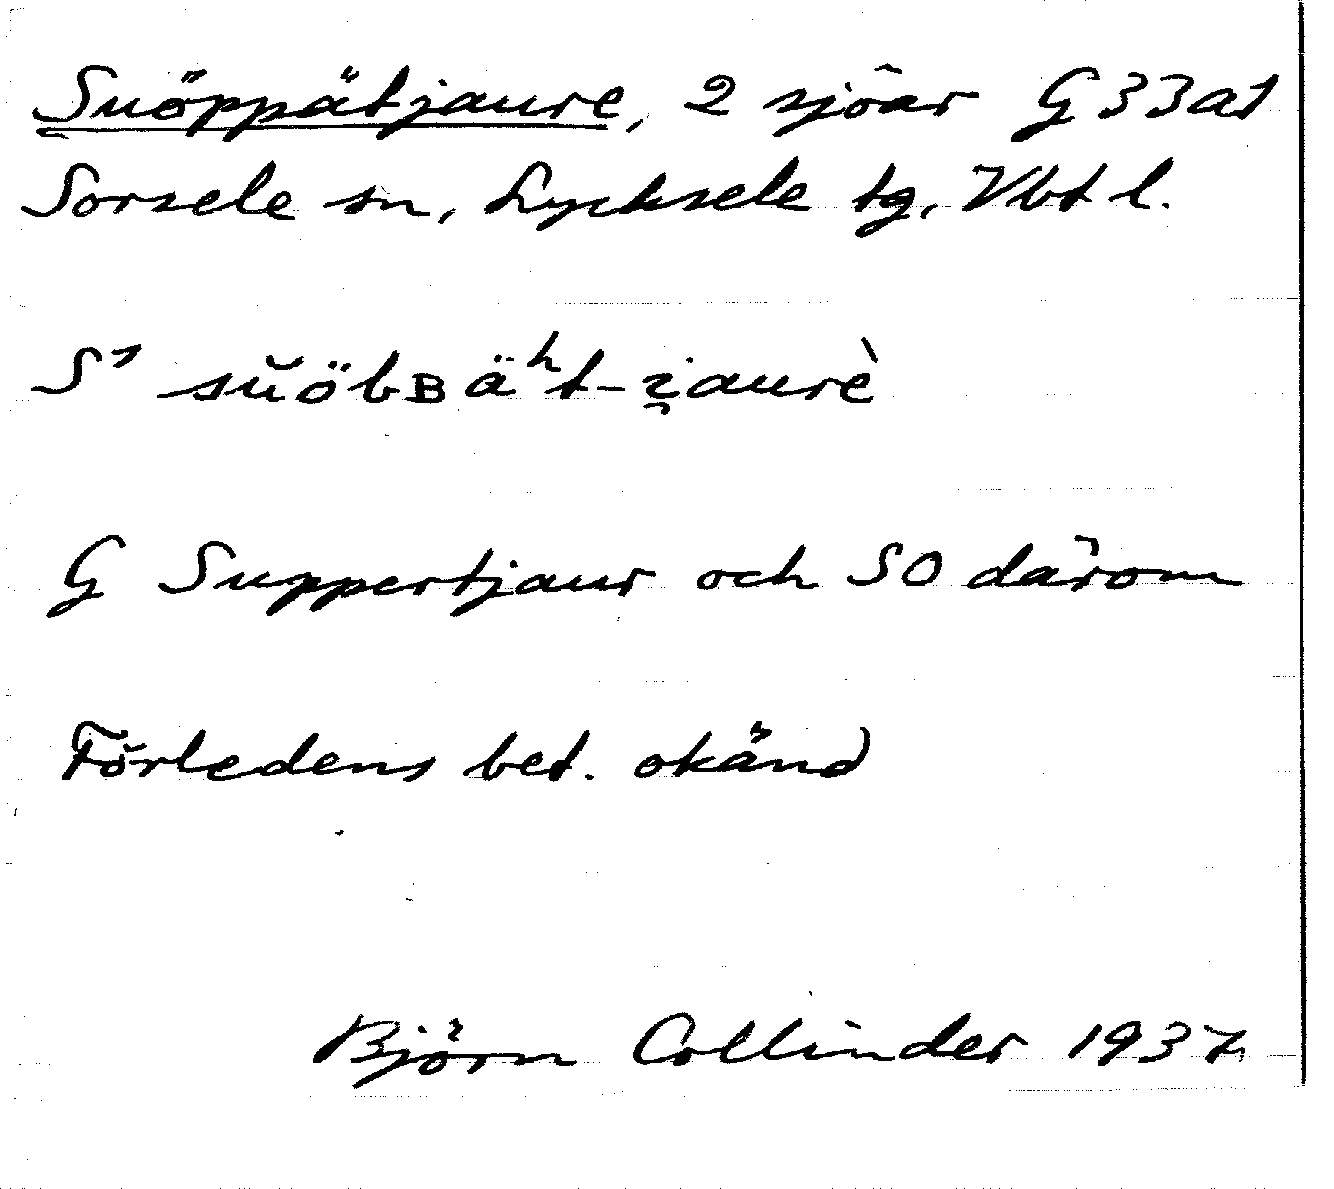 Suöppätjaure, 2 sjöar G 33a1
Sorsele sn, Lycksele tg, Vbt l.
S¹ sŭöbʙäʰt-i̯aurè
G Suppertjaur och SO därom
Förledens bet. okänd
Björn Collinder 1937